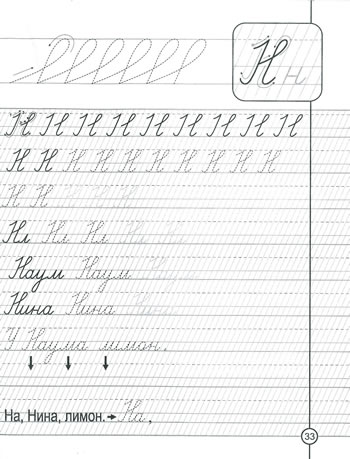 Н н
Н Н Н Н Н Н Н Н Н
Н Н Н Н Н Н Н Н Н Н
Н Н Н Н Н
Нл Нл Нл Нл Н
Наум Наум Нау
Нина Нина Нина
У Наума лимон.
На, Нина, лимон. → На,
33